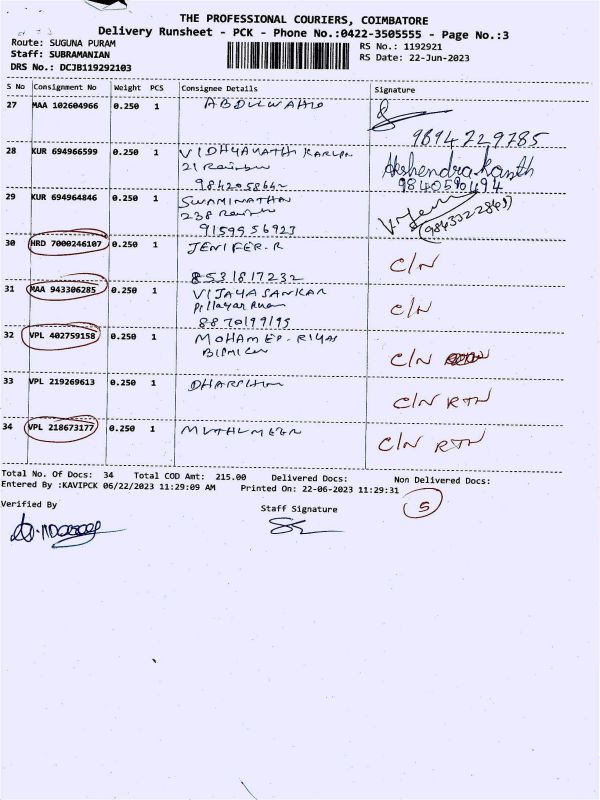 THE PROFESSIONAL COURIERS, COIMBATORE
Delivery Runsheet - PCK - Phone No.:0422-3505555 - Page No.:3
Route: SUGUNA PURAM
RS No.: 1192921
Staff: SUBRAMANIAN
RS Date: 22-Jun-2023
DRS No.: DCJB119292103
S No Consignment No Weight PCS Consignee Details Signature
27 MAA 102604966 0.250 1 ABDULWAHID
9894229785
28 KUR 694966599 0.250 1 VIDHYANATH
21 Rainbow
9840590494
29 KUR 694964846 0.250 1 SWAMINATHAN
238 Rainbow
9159956923
30 HRD 7000246107 0.250 1 JENIFER.R C/N
8531817232
31 MAA 943306285 0.250 1 VIJAYASANKAR C/N
8870199195
32 VPL 402759158 0.250 1 MOHAMED. C/N
33 VPL 219269613 0.250 1 C/N RTN
34 VPL 218673177 0.250 1 C/N RTN
Total No. Of Docs: 34 Total COD Amt: 215.00 Delivered Docs: Non Delivered Docs:
Entered By :KAVIPCK 06/22/2023 11:29:09 AM Printed On: 22-06-2023 11:29:31
5
Verified By
Staff Signature